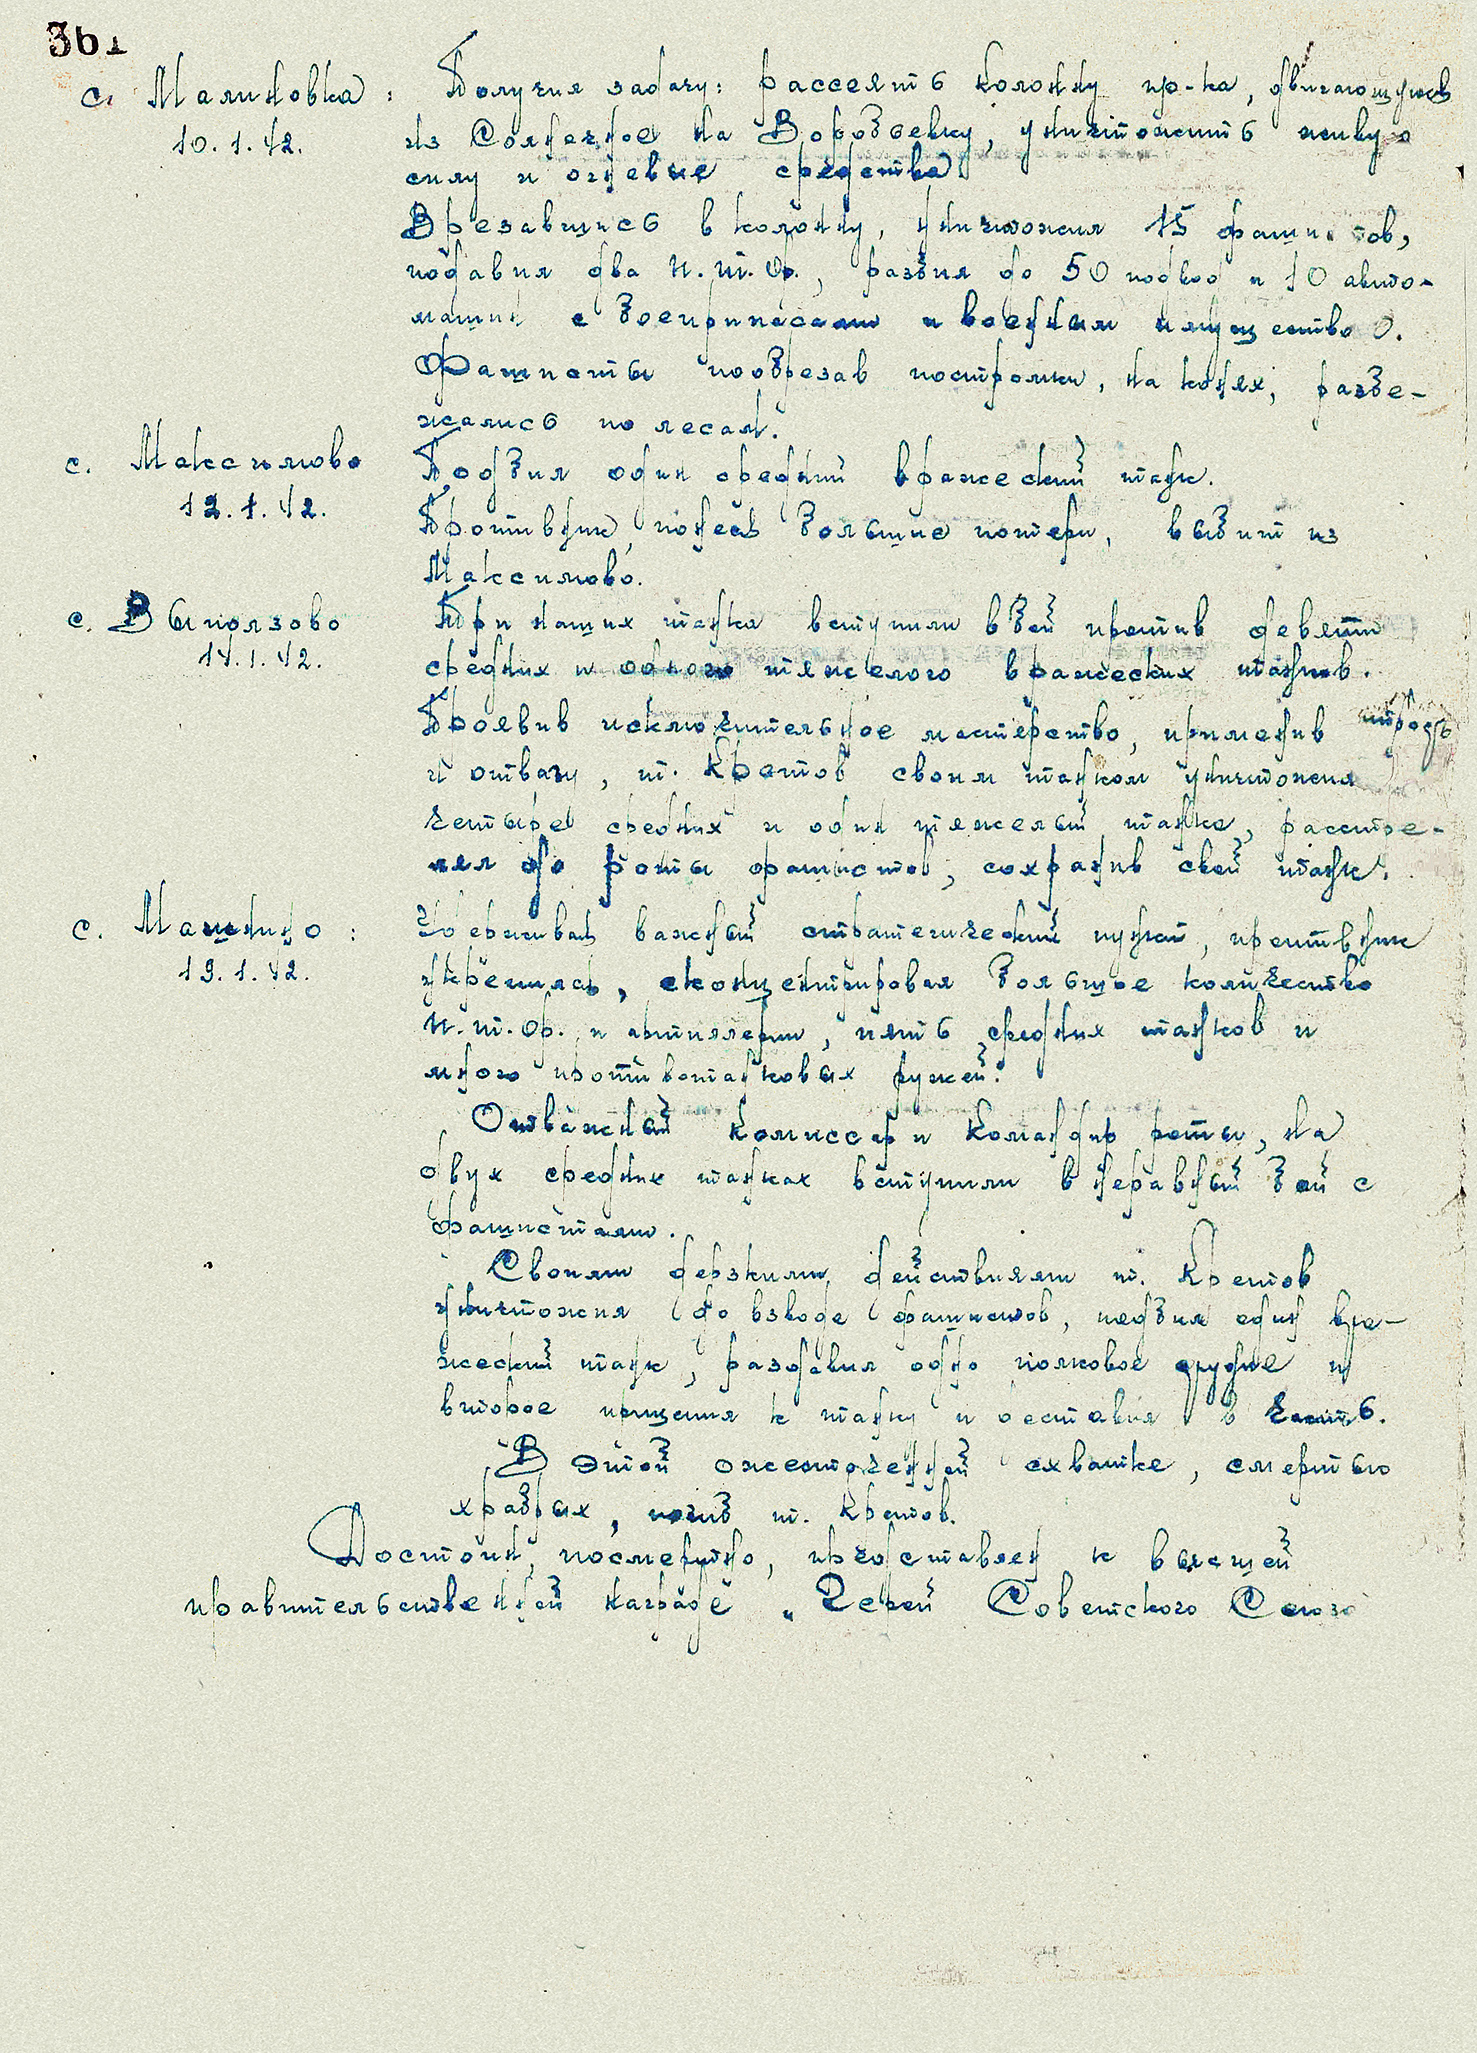 361
с. Малиновка: Получил задачу: рассеять колонну пр-ка, двигающуюся
10.1.42. из Солнечное на Воробьевку, уничтожить живую
силу и огневые средства.
Врезавшись в колонну, уничтожил 15 фашистов,
подавил два п.т.ор., разбил до 50 подвод и 10 авто-
машин с боеприпасами и военным имуществом.
Фашисты пообрезав постромки, на конях, разбе-
жались по лесам.
с. Максимово Подбил один средний вражеский танк.
12.1.42. Противник, понеся большие потери, выбит из
Максимово.
с. Выползово Три наших танка вступили в бой против девяти
17.1.42. средних и одного тяжелого вражеских танков.
Проявив исключительное мастерство, применив
и отвагу, т. Кретов своим танком уничтожил
четыре средних и один тяжелый танка, расстре-
лял до роты фашистов, сохранив свой танк.
с. Машкино: Удерживая важный стратегический пункт, противник
19.1.42. укрепился, сконцентрировал большое количество
п.т.ор. и артиллерии, пять средних танков и
много противотанковых ружей.
Отважный комиссар и командир роты, на
двух средних танках вступили в неравный бой с
фашистами.
Своими дерзкими действиями т. Кретов
уничтожил до взвода фашистов, подбил один вра-
жеский танк, раздавил одно полковое орудие и
второе прицепил к танку и доставил в часть.
В этой ожесточенной схватке, смертью
храбрых, погиб т. Кретов.
Достоин, посмертно, представлен к высшей
правительственной награде „Герой Советского Союза